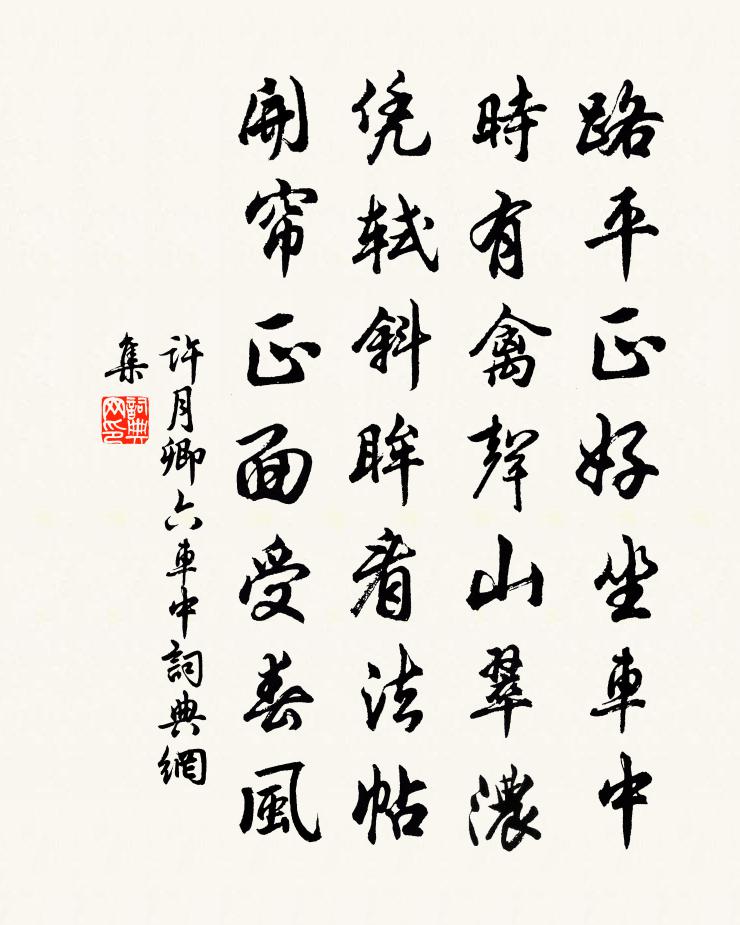 路平正好坐車中
時有禽聲山翠濃
凭軾斜眸看法帖
開帘正面受春風
許月卿六車中詞典網
集
詞典
网印